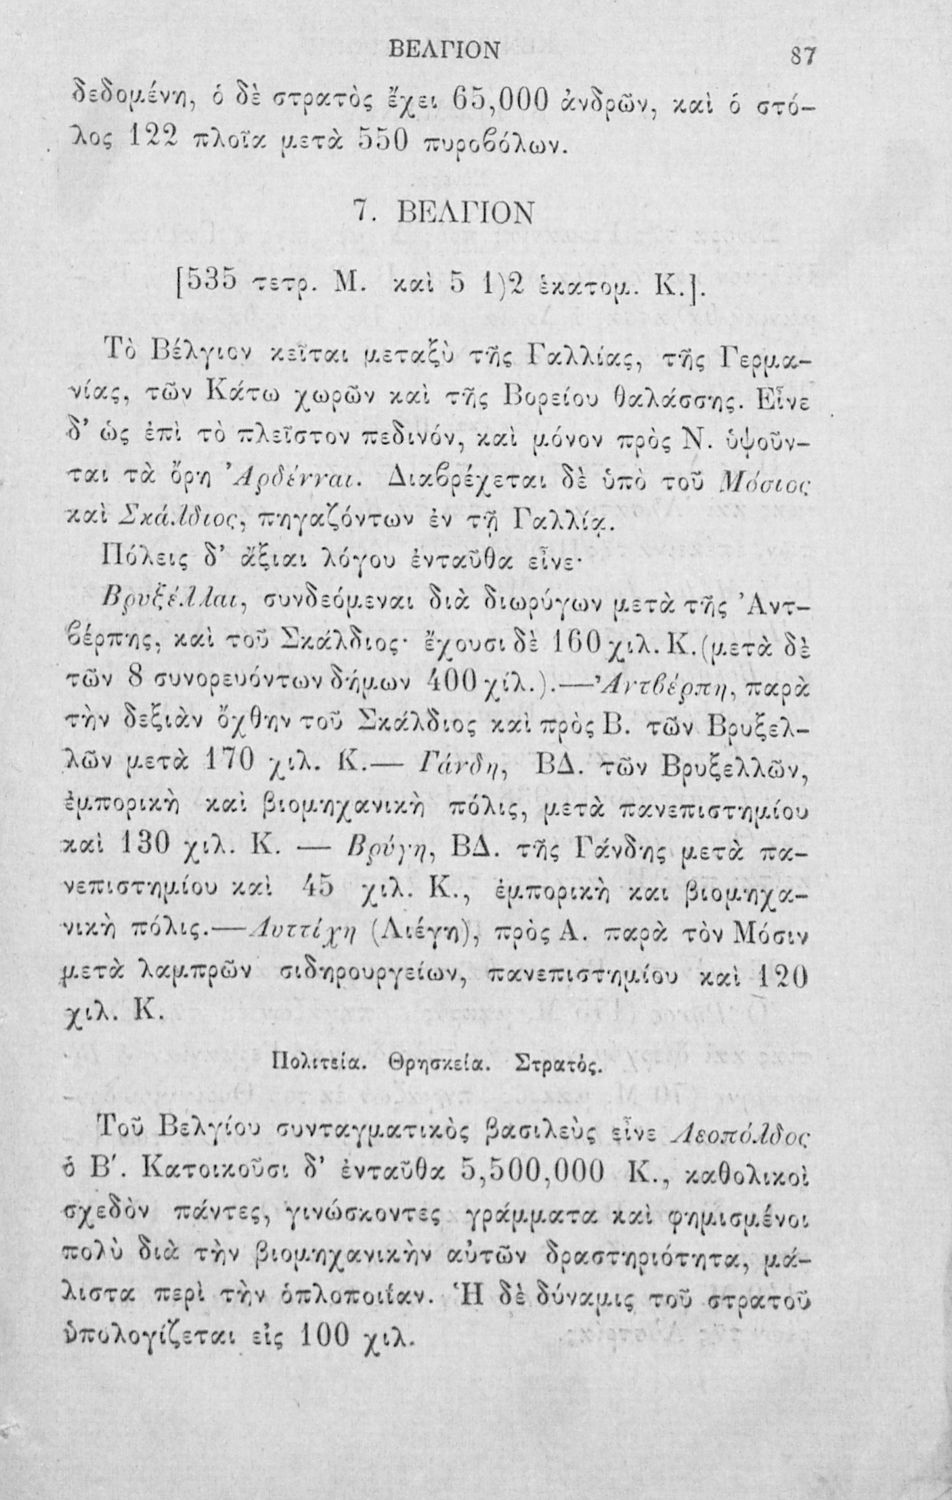 ΒΕΛΓΙΟΝ 87
δεδομένη, ὁ δὲ στρατὸς ἔχει 65,000 ἀνδρῶν, καὶ ὁ στό-
λος 122 πλοῖα μετὰ 550 πυροβόλων.
7. ΒΕΛΓΙΟΝ
[535 τετρ. Μ. καὶ 5 1)2 ἑκατομ. Κ.].
Τὸ Βέλγιον κεῖται μεταξὺ τῆς Γαλλίας, τῆς Γερμα-
νίας, τῶν Κάτω χωρῶν καὶ τῆς Βορείου θαλάσσης. Εἶνε
δ' ὡς ἐπὶ τὸ πλεῖστον πεδινόν, καὶ μόνον πρὸς Ν. ὑψοῦν-
ται τὰ ὄρη Ἀρδένναι. Διαβρέχεται δὲ ὑπὸ τοῦ Μόσιος
καὶ Σκάλδιος, πηγαζόντων ἐν τῇ Γαλλίᾳ.
Πόλεις δ' ἄξιαι λόγου ἐνταῦθα εἶνε·
Βρυξέλλαι, συνδεόμεναι διὰ διωρύγων μετὰ τῆς Ἀντ-
βέρπης, καὶ τοῦ Σκάλδιος· ἔχουσι δὲ 160 χιλ. Κ. (μετὰ δὲ
τῶν 8 συνορευόντων δήμων 400 χίλ.).—Ἀντβέρπη, παρὰ
τὴν δεξιὰν ὄχθην τοῦ Σκάλδιος καὶ πρὸς Β. τῶν Βρυξελ-
λῶν μετὰ 170 χιλ. Κ.— Γάνδη, ΒΔ. τῶν Βρυξελλῶν,
ἐμπορικὴ καὶ βιομηχανικὴ πόλις, μετὰ πανεπιστημίου
καὶ 130 χιλ. Κ. — Βρύγη, ΒΔ. τῆς Γάνδης μετὰ πα-
νεπιστημίου καὶ 45 χιλ. Κ., ἐμπορικὴ και βιομηχα-
νικὴ πόλις.—Λυττίχη (Λιέγη), πρὸς Α. παρὰ τὸν Μόσιν
μετὰ λαμπρῶν σιδηρουργείων, πανεπιστημίου καὶ 120
χιλ. Κ.
Πολιτεία. Θρησκεία. Στρατός.
Τοῦ Βελγίου συνταγματικὸς βασιλεὺς εἶνε Λεοπόλδος
ὁ Β'. Κατοικοῦσι δ' ἐνταῦθα 5,500,000 Κ., καθολικοὶ
σχεδὸν πάντες, γινώσκοντες γράμματα καὶ φημισμένοι
πολὺ διὰ τὴν βιομηχανικὴν αὐτῶν δραστηριότητα, μά-
λιστα περὶ τὴν ὁπλοποιΐαν. Ἡ δὲ δύναμις τοῦ στρατοῦ
ὑπολογίζεται εἰς 100 χιλ.